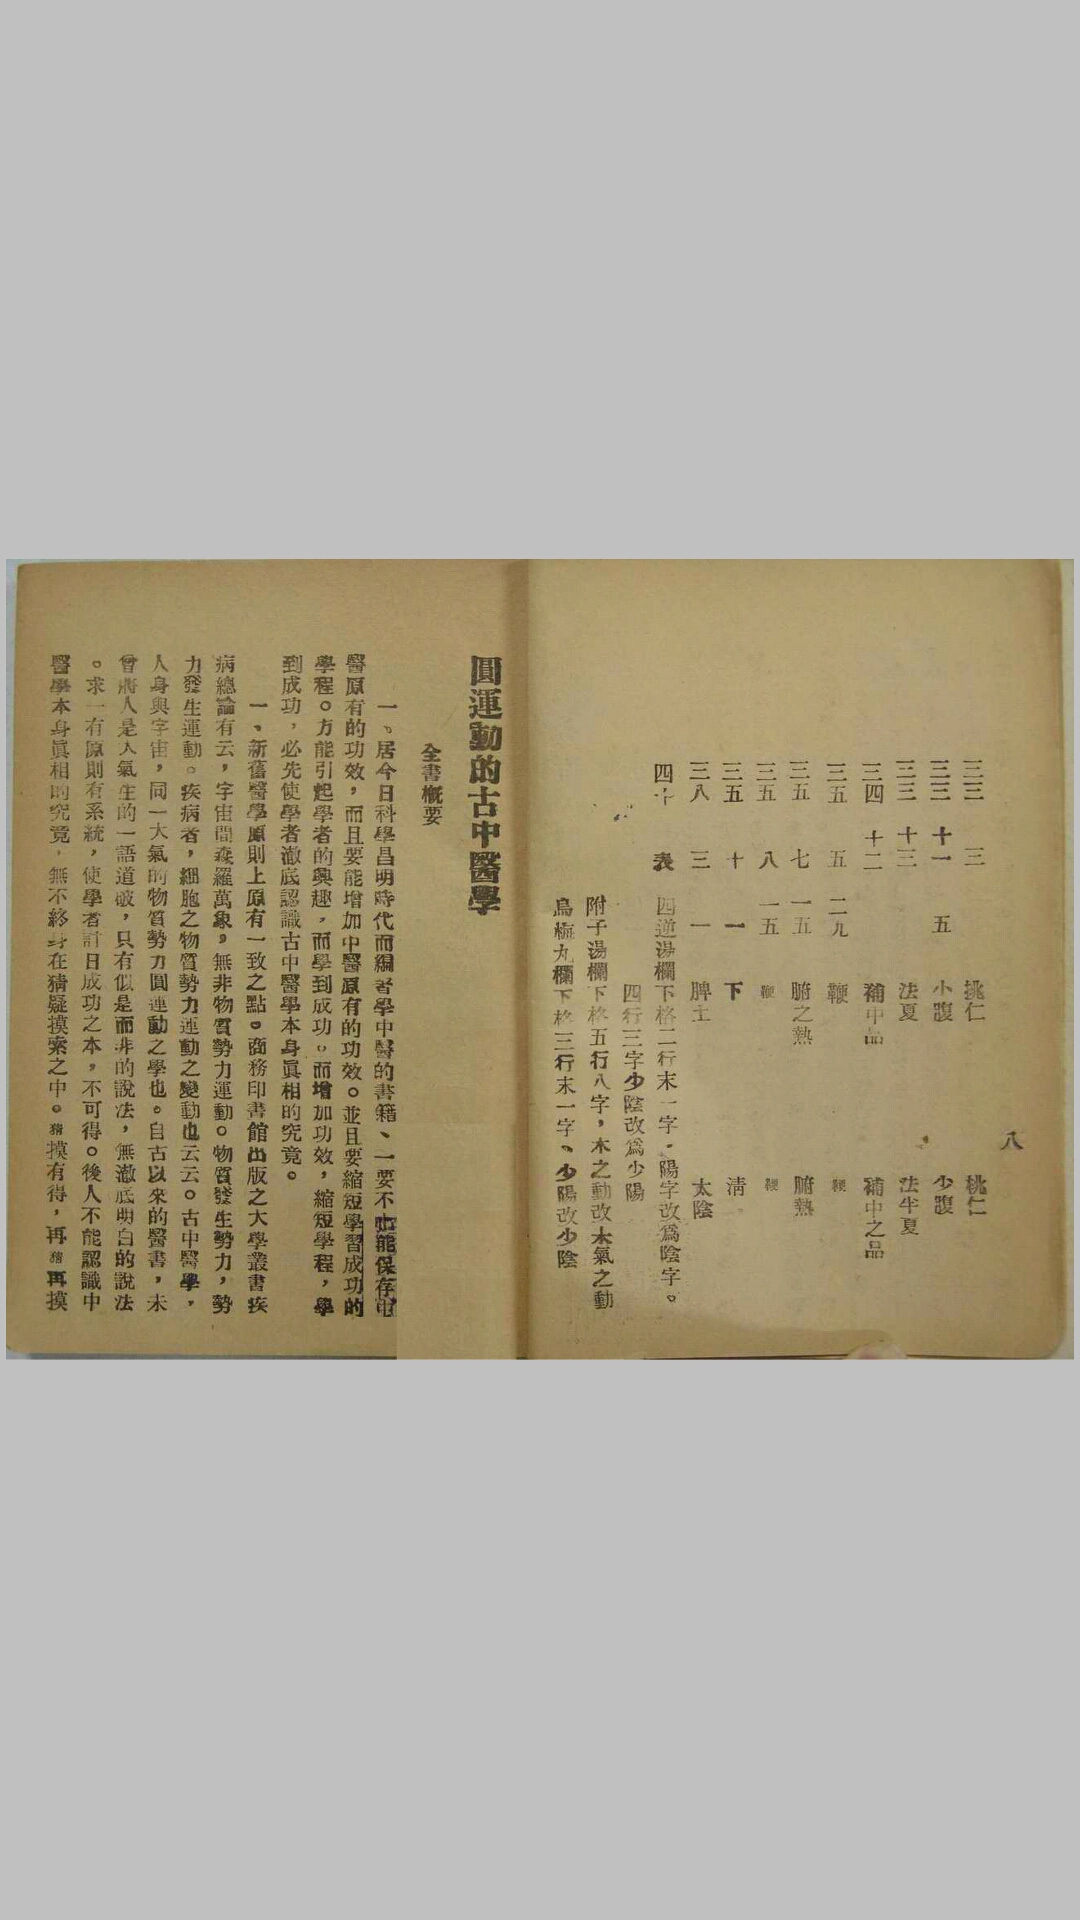 八
三三 三 挑仁 桃仁
三三 十一 五 小腹 少腹
三三 十三 法夏 法半夏
三四 十二 補中品 補中之品
三五 五 二九 鞭
三五 七 一五 腑之熱 腑熱
三五 八 一五
三五 十 一 下 淸
三八 三 一 脾土 太陰
四十 表 四逆湯欄下格二行末一字，陽字改爲陰字。
四行三字少陰改爲少陽
附子湯欄下格五行八字，木之動改木氣之動
烏梅丸欄下格三行末一字、少陽改少陰
圓運動的古中醫學
全書槪要
一、居今日科學昌明時代而編著學中醫的書籍、一要不止能保存中
醫原有的功效，而且要能增加中醫原有的功效。並且要縮短學習成功的
學程。方能引起學者的興趣，而學到成功。而增加功效，縮短學程，學
到成功，必先使學者澈底認識古中醫學本身眞相的究竟。
一、新舊醫學原則上原有一致之點。商務印書館出版之大學叢書疾
病總論有云，宇宙間森羅萬象，無非物質勢力運動。物質發生勢力，勢
力發生運動。疾病者，細胞之物質勢力運動之變動也云云。古中醫學，
人身與宇宙，同一大氣的物質勢力圓運動之學也。自古以來的醫書，未
曾將人是大氣生的一語道破，只有似是而非的說法，無澈底明白的說法
。求一有原則有系統，使學者計日成功之本，不可得。後人不能認識中
醫學本身眞相的究竟，無不終身在猜疑摸索之中。猜摸有得，再猜再摸